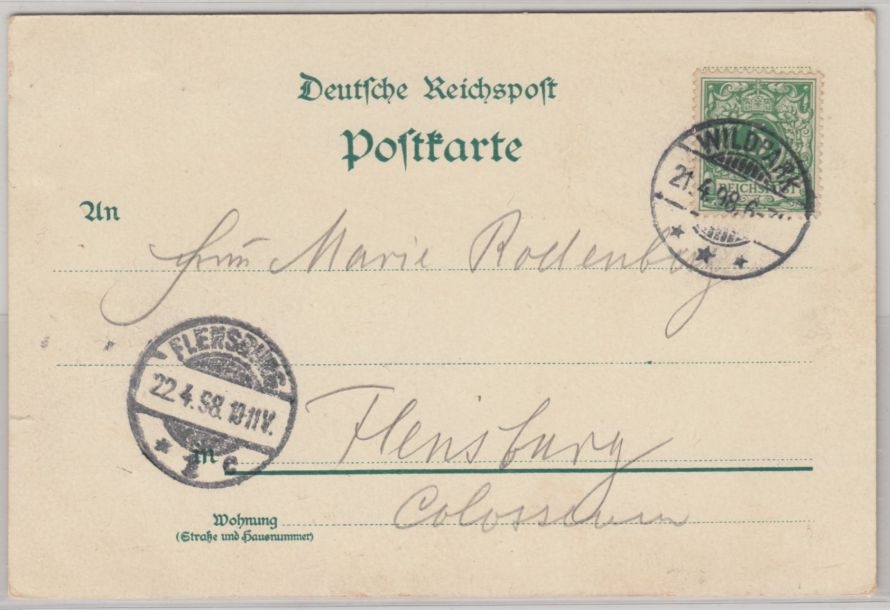 Deutsche Reichspost
Postkarte
WILDPARK
21.4.98. 6-
REICHSPOST
An
Marie Rodenberg
FLENSBURG
22.4.98. 10-11 V.
* 1 c
in
Flensburg
Wohnung
(Straße und Hausnummer)
Colosseum